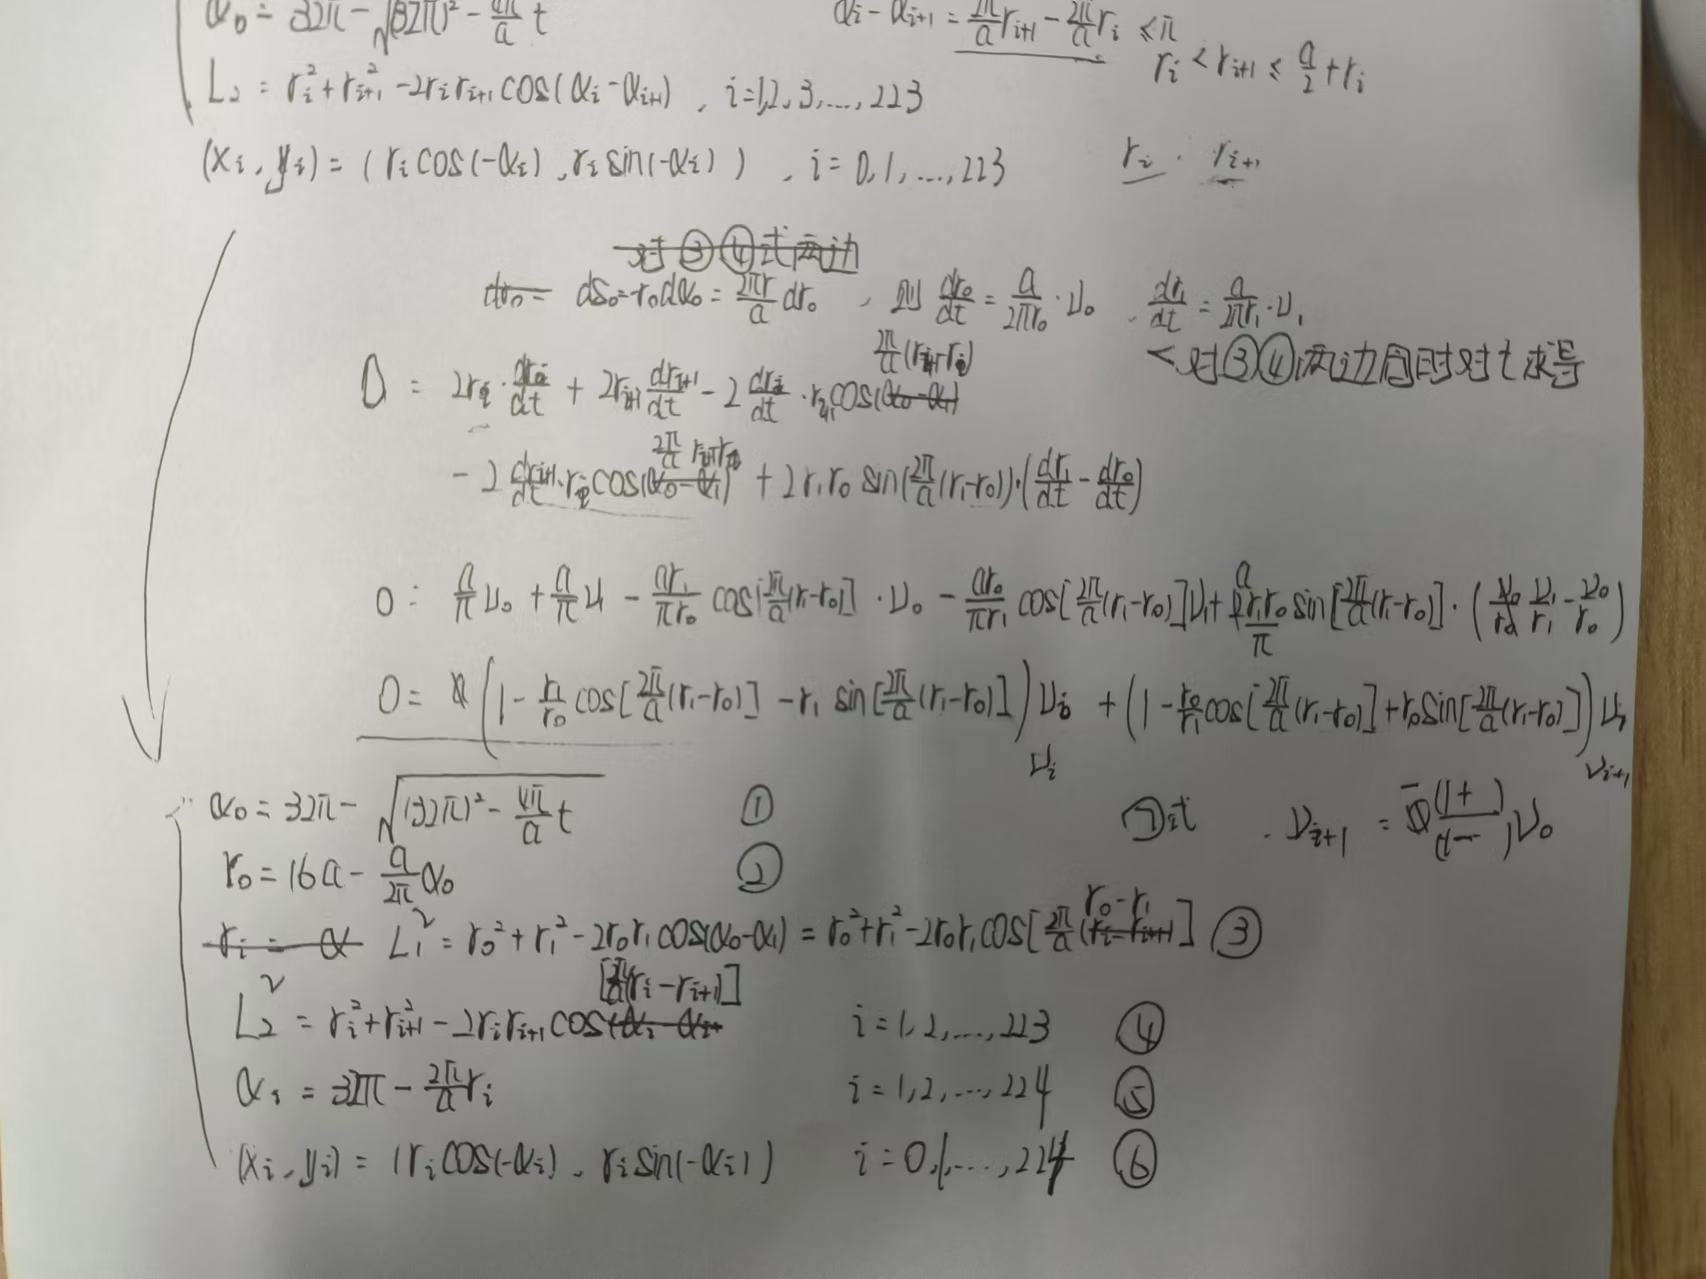 α₀ = 32π - √((32π)² - 4π/a t)
αi - αi+1 = 2π/a ri+1 - 2π/a ri ≤ π
ri < ri+1 ≤ a/2 + ri
L₂ = ri² + ri+1² - 2ri ri+1 cos(αi - αi+1) , i=1,2,3,...,223
(xi, yi) = (ri cos(-αi), ri sin(-αi)) , i = 0,1,...,223
ri . ri+1
对③④式两边
dr₀ = ds₀ = r₀dα₀ = 2πr/a dr₀ , 则 dr₀/dt = a/2πr₀ · υ₀ , dr₁/dt = a/2πr₁ · υ₁
<对③④两边同时对t求导
2π/a (ri+1 - ri)
0 = 2ri · dri/dt + 2ri+1 dri+1/dt - 2 dri/dt · ri+1 cos(α₀ - α₁)
2π/a ri+1 - ri
- 2 dri+1/dt · ri cos(α₀ - α₁) + 2r₁r₀ sin(2π/a (r₁-r₀)) · (dr₁/dt - dr₀/dt)
0 = a/π υ₀ + a/π υ₁ - ar₁/πr₀ cos[2π/a (r₁-r₀)] · υ₀ - ar₀/πr₁ cos[2π/a (r₁-r₀)]υ₁ + a r₁r₀/π sin[2π/a (r₁-r₀)] · (υ₁/r₁ - υ₀/r₀)
0 = (1 - r₁/r₀ cos[2π/a (r₁-r₀)] - r₁ sin[2π/a (r₁-r₀)]) υ₀ + (1 - r₀/r₁ cos[2π/a (r₁-r₀)] + r₀ sin[2π/a (r₁-r₀)]) υ₁
υi υi+1
α₀ = 32π - √((32π)² - 4π/a t) ①
⑦式 . υi+1 = -(1+ )/(1- ) υ₀
r₀ = 16a - a/2π α₀ ②
r₀ - r₁
ri = α L₁² = r₀² + r₁² - 2r₀r₁ cos(α₀ - α₁) = r₀² + r₁² - 2r₀r₁ cos[2π/a (ri - ri+1)] ③
[2π/a (ri - ri+1)]
L₂² = ri² + ri+1² - 2ri ri+1 cos(αi - αi+ i = 1,2,...,223 ④
αi = 32π - 2π/a ri i = 1,2,...,224 ⑤
(xi, yi) = (ri cos(-αi), ri sin(-αi)) i = 0,1,...,224 ⑥